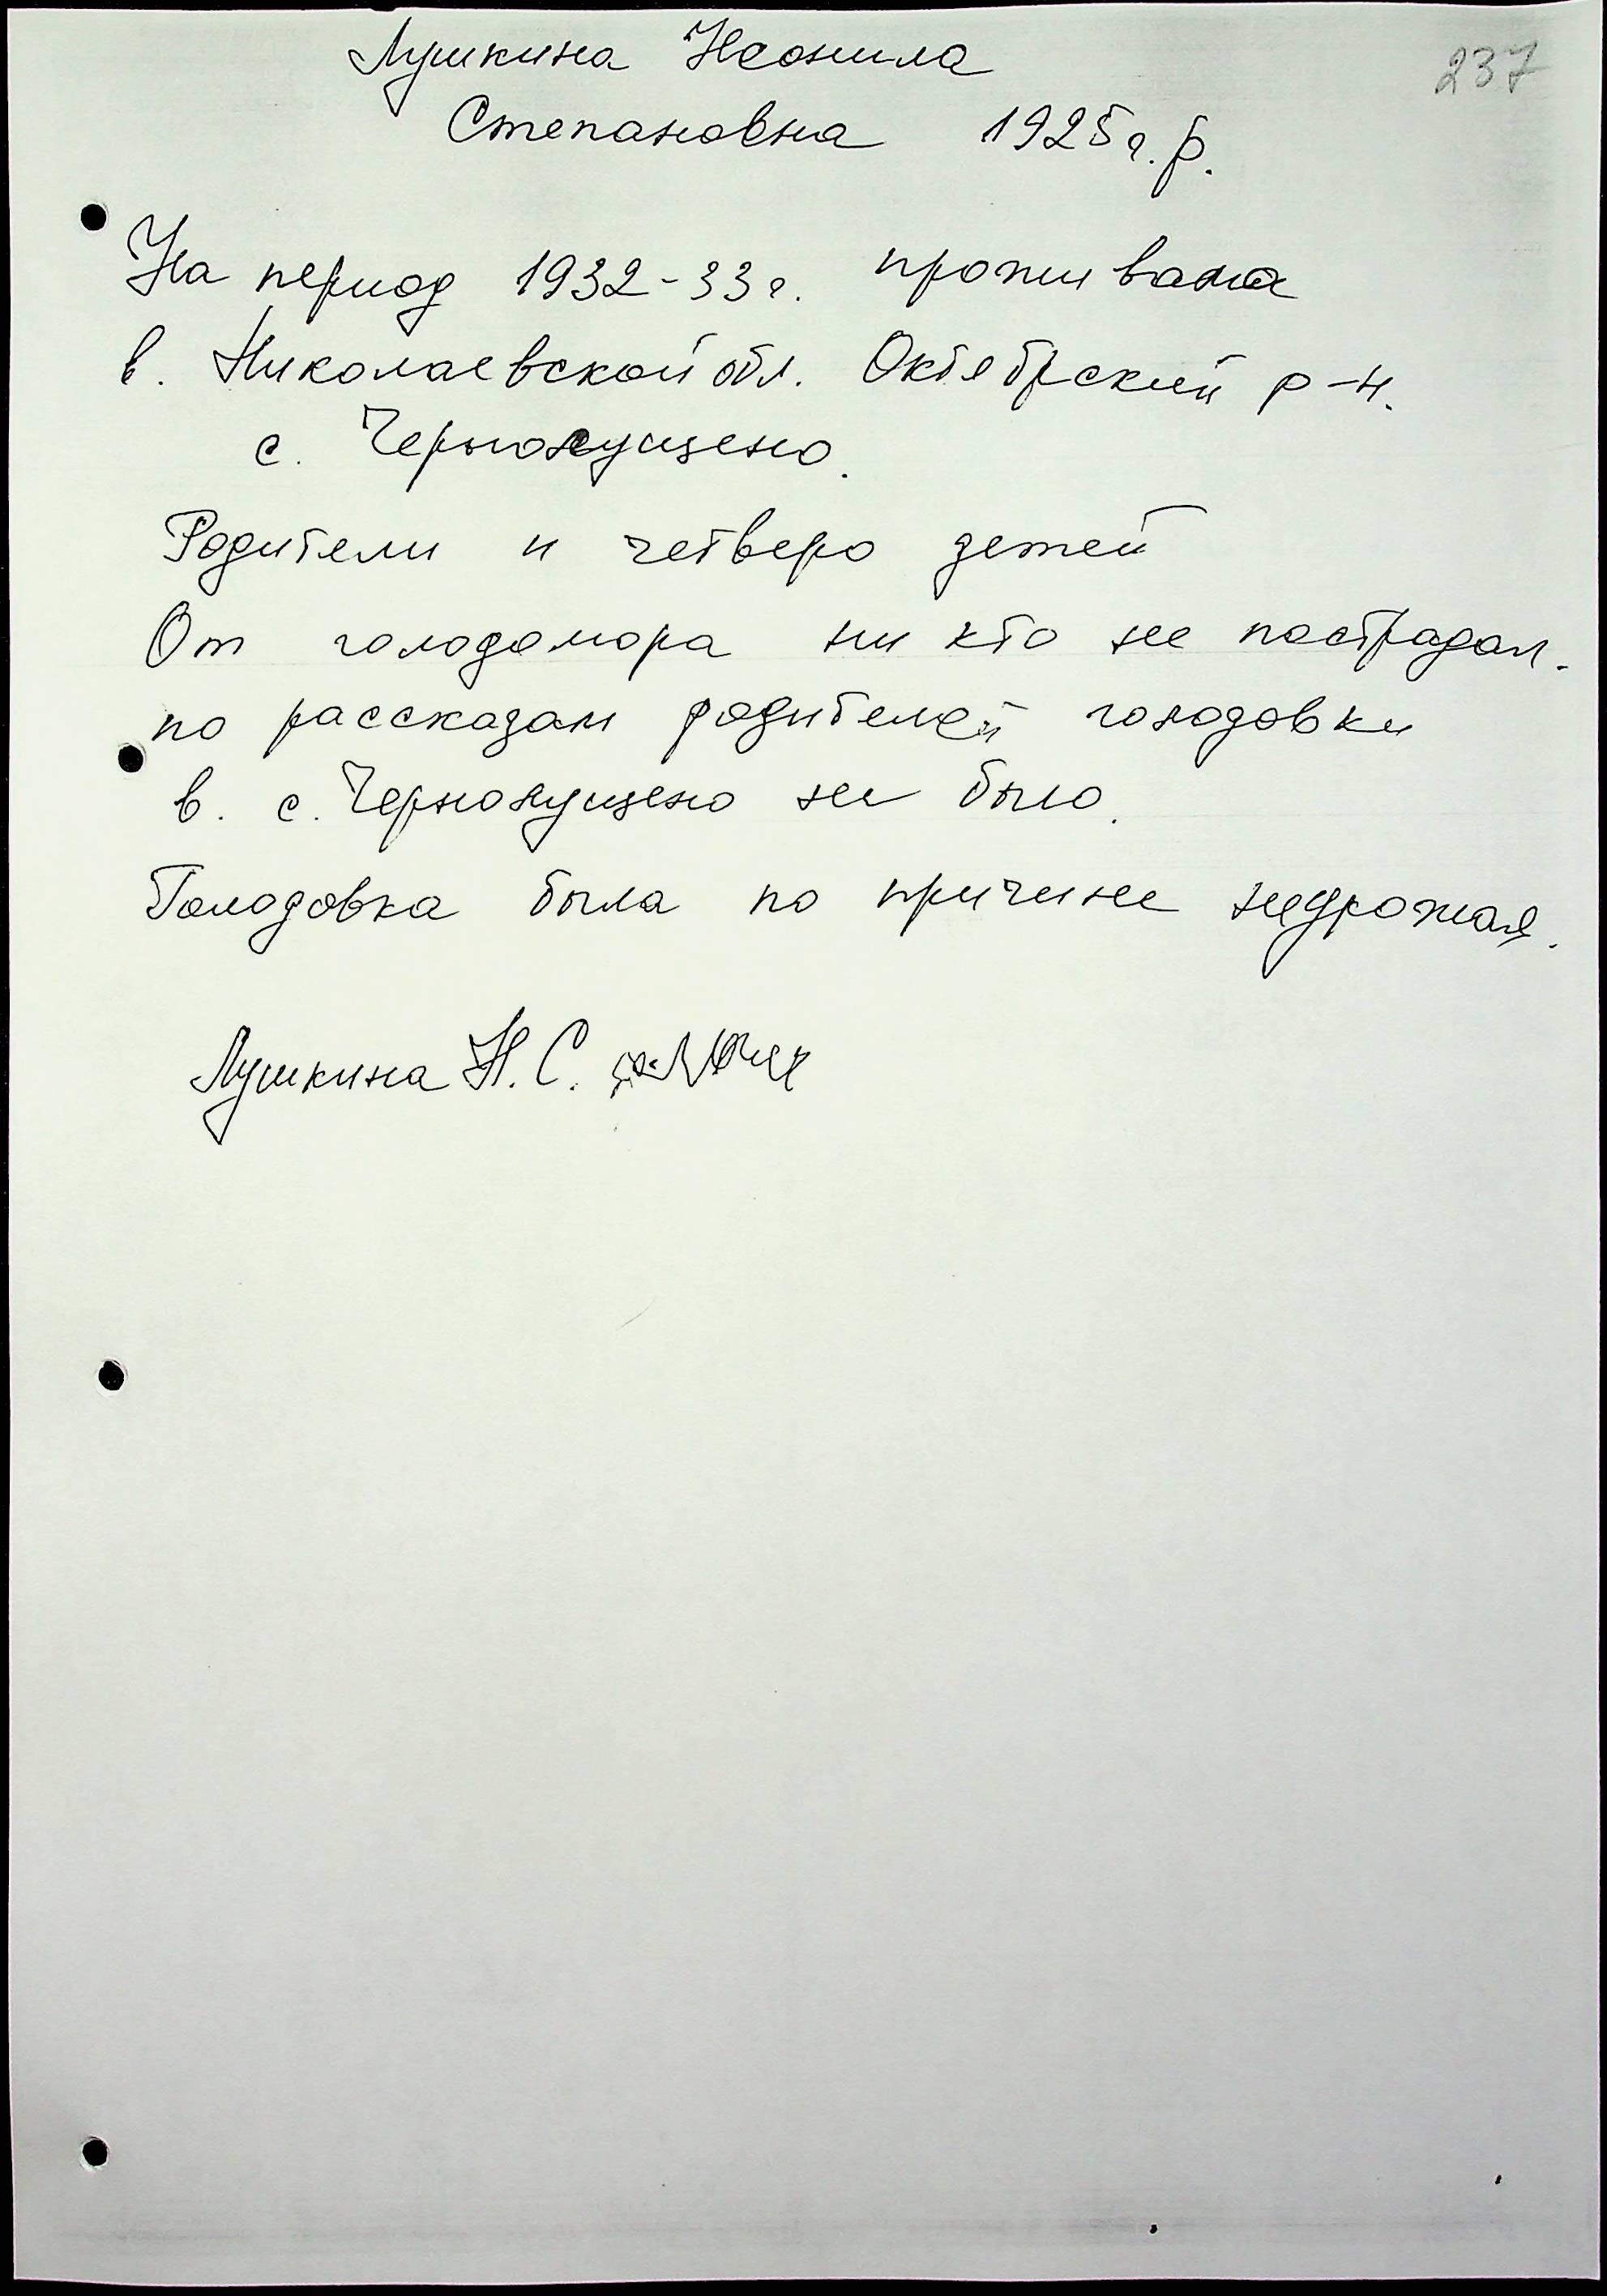 Лушкина Неонила
237
Степановна 1925 г.р.
На период 1932-33 г. проживала
в. Николаевской обл. Октябрский р-н.
с. Чернолущено.
Родители и четверо детей
От голодомора ни кто не пострадал.
по рассказам родителей голодовки
в. с. Чернолущено не было.
Голодовка была по причине неурожая.
Лушкина Н. С.